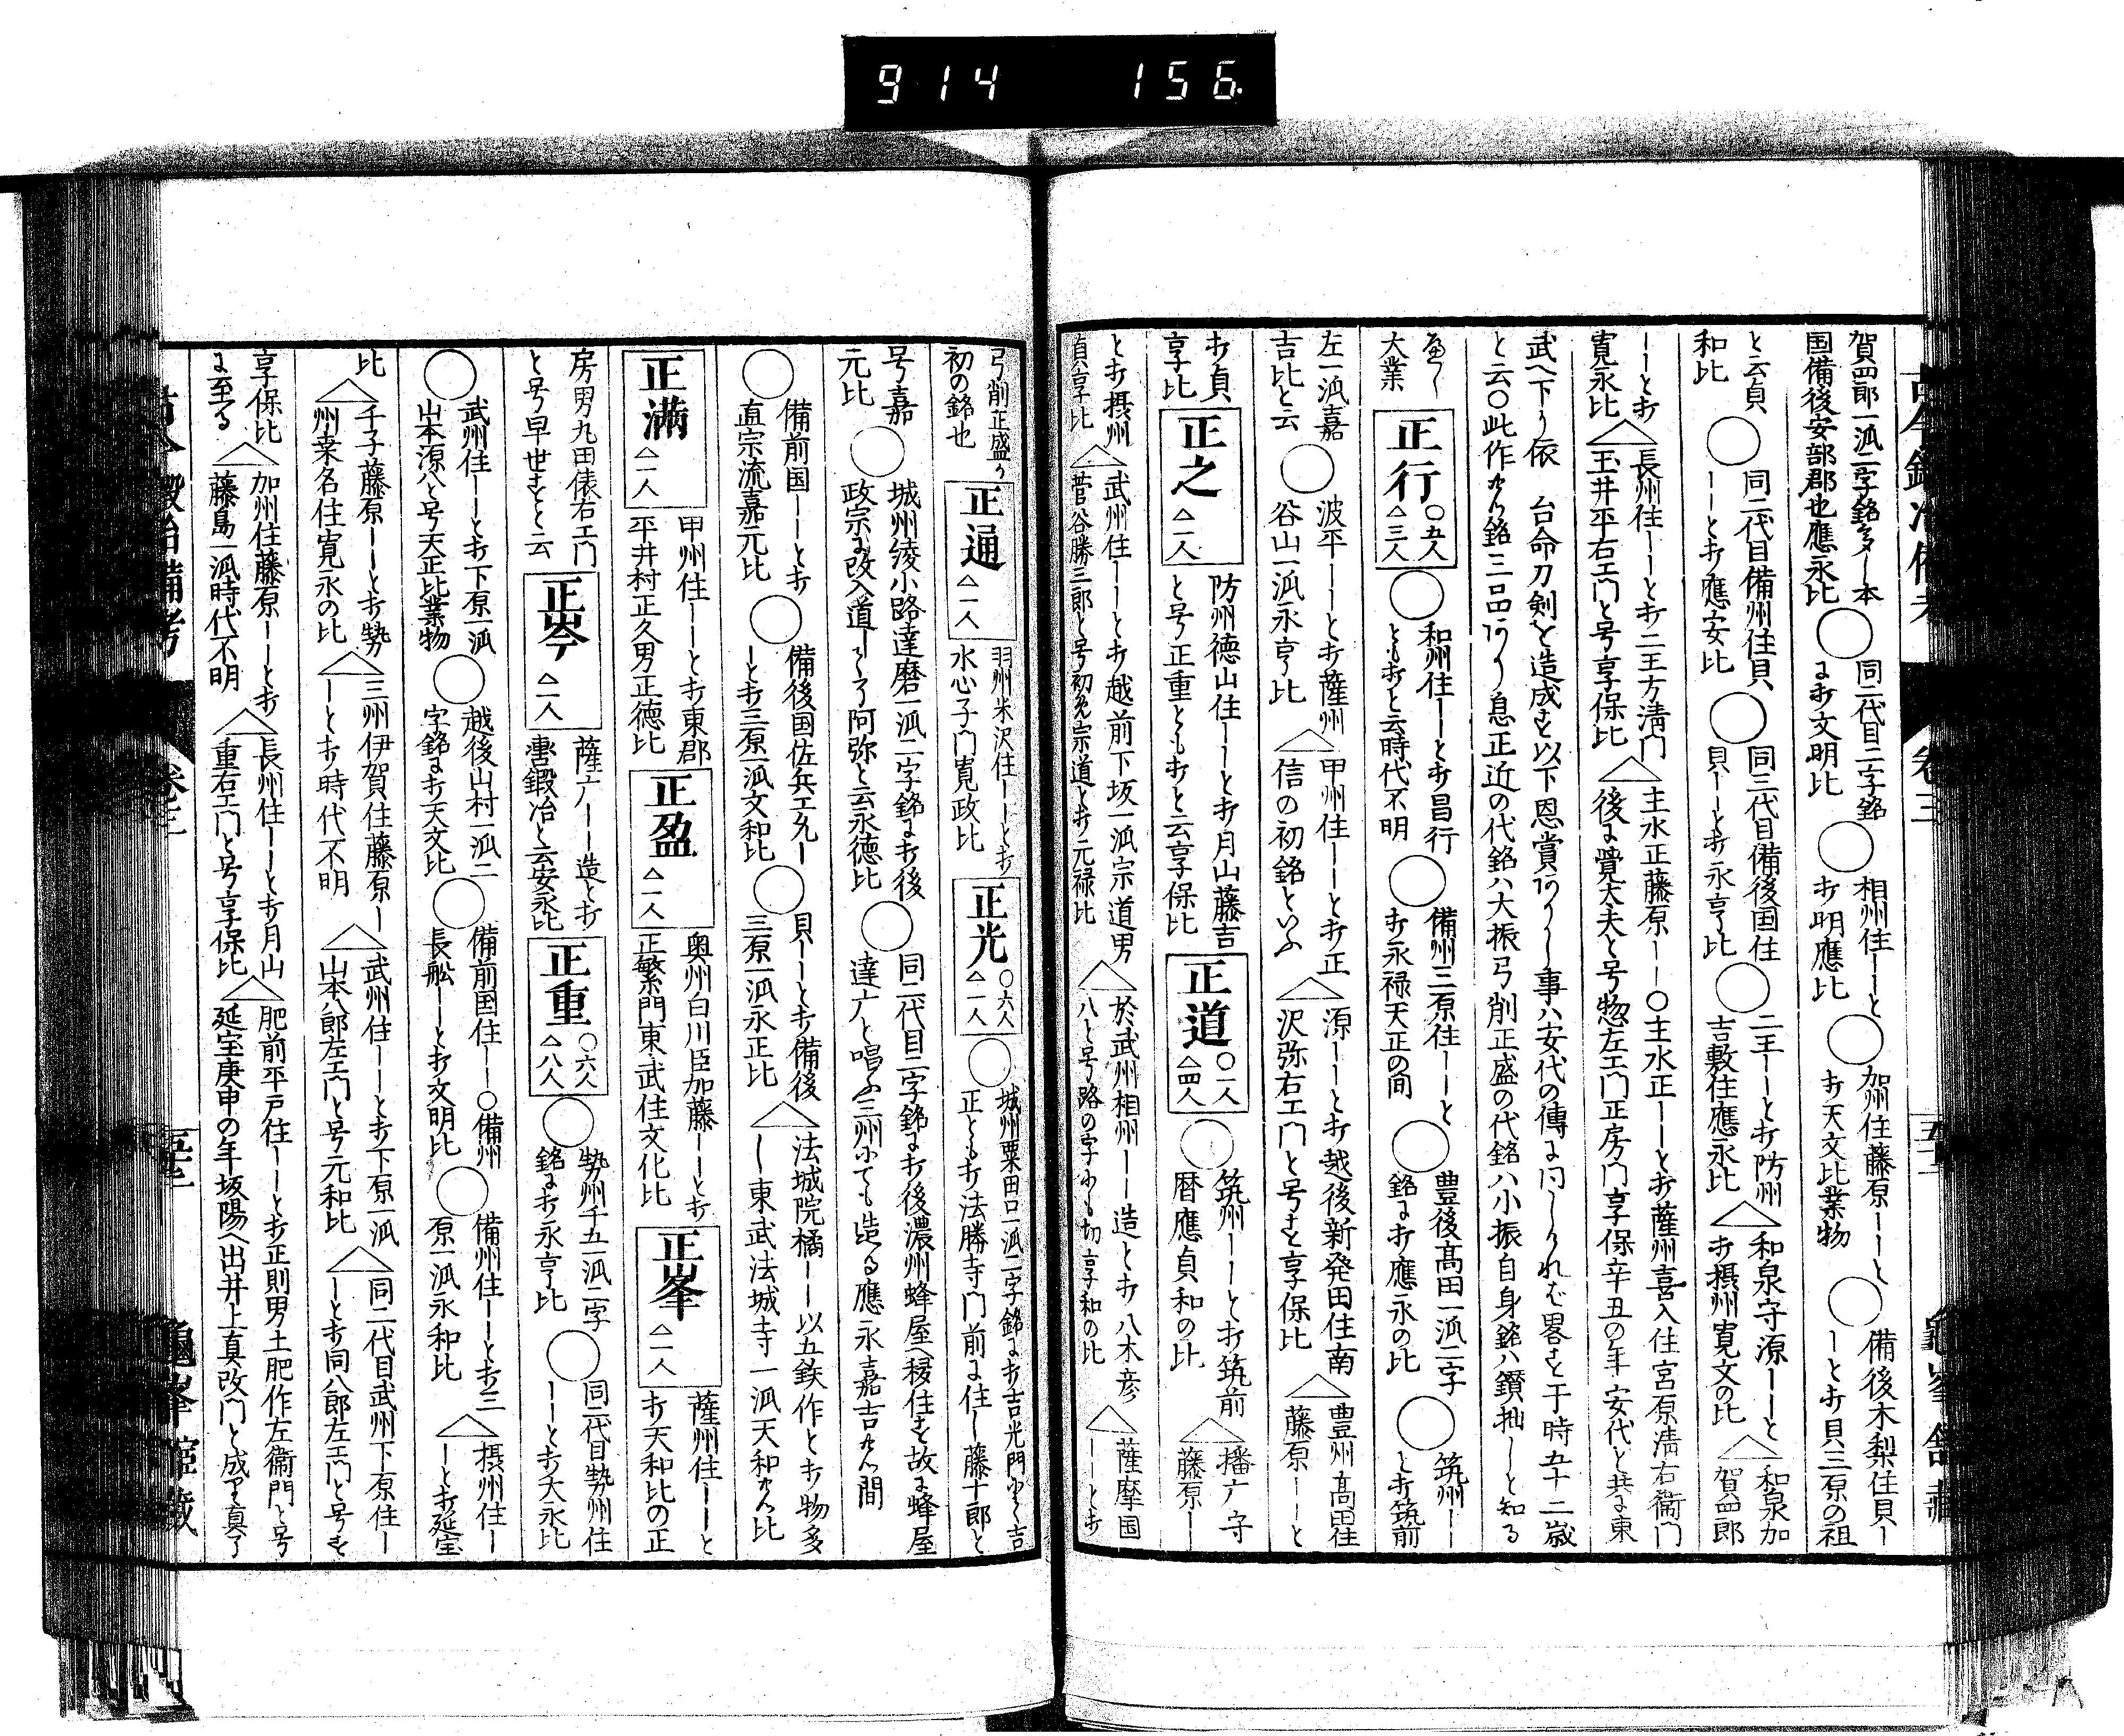 914 156
賀四郎一派二字銘多し本
国備後安部郡也應永比
同二代目二字銘
にオ文明比
相州住ーーと
オ明應比
加州住藤原ーーと
オ天文比業物
備後木梨住貝ー
ーとオ貝三原の祖
と云貞
和比
同二代目備州住貝
ーーとオ應安比
同三代目備後国住
貝ーーとオ永享比
二王ーーとオ防州
吉敷住應永比
和泉守源ーーと
オ摂州寛文の比
和泉加
賀四郎
ーーとオ
寛永比
長州住ーーとオ二王方清門
玉井平右エ門と号享保比
主水正藤原ーー〇主水正ーーとオ薩州喜入住宮原清右衛門
後に覺太夫と号惣左エ門正房門享保辛丑の年安代と共に東
武へ下り依 台命刀剣を造成を以下恩賞ありし事ハ安代の傳に同しけれむ畧を于時五十二歳
と云〇此作銘三品あり息正近の代銘ハ大振弓削正盛の代銘ハ小振自身銘ハ鑚拙しと知る
大業
正行
〇五人
△三人
和州住ーーとオ昌行
ともオと云時代不明
備州三原住ーーと
オ永禄天正の间
豊後髙田一派二字
銘にオ應永の比
筑州ーー
とオ筑前
左一派嘉
吉比と云
波平ーーとオ薩州
谷山一派永享比
甲州住ーーとオ正
信の初銘といふ
源ーーとオ越後新発田住南
沢弥右エ門と号を享保比
豊州髙田住
藤原ーーと
オ貞
享比
正之
△二人
防州徳山住ーーとオ月山藤吉
と号正重ともオと云享保比
正道
〇一人
△四人
筑州ーーとオ筑前
暦應貞和の比
播广守
藤原ーー
とオ摂州
貞享比
武州住ーーとオ越前下坂一派宗道男
菅谷勝三郎と号初兔宗道とオ元禄比
於武州相州ーー造とオ八木彦
八と号路の字にも切享和の比
薩摩国
ーーとオ
弓削正盛か
初の銘也
正通
△一人
羽州米沢住ーーとオ
水心子門寛政比
正光
〇六人
△一人
城州粟田口一派二字銘にオ吉光門とく吉
正ともオ法勝寺門前に住し藤十郎と
号嘉
元比
城州綾小路達磨一派二字銘にオ後
政宗に改入道して了阿弥と云永徳比
同二代目二字銘にオ後濃州蜂屋へ移住を故に蜂屋
達广と唱ふ三州にても造る應永嘉吉間
備前国ーーとオ
直宗流嘉元比
備後国佐兵エ尉ー
ーとオ三原一派文和比
貝ーーとオ備後
三原一派永正比
法城院橘ーー以五鉄作とオ物多
し東武法城寺一派天和比
正滿
△一人
甲州住ーーとオ東郡
平井村正久男正徳比
正盈
△一人
奥州白川臣加藤ーーとオ
正繁門東武住文化比
正峯
△一人
薩州住ーーと
オ天和比の正
房男九田俵右エ門
と号早世をと云
正岑
△一人
薩广ーー造とオ
轡鍛冶と云安永比
正重
〇六人
△八人
勢州千五一派二字
銘にオ永享比
同二代目勢州住
ーーとオ大永比
武州住ーーとオ下原一派
山本源八と号天正比業物
越後山村一派二
字銘にオ天文比
備前国住ーー〇備州
長舩ーーとオ文明比
備州住ーーとオ三
原一派永和比
摂州住ー
ーとオ延宝
比
千子藤原ーーとオ勢
州桒名住寛永の比
三州伊賀住藤原ー
ーとオ時代不明
武州住ーーとオ下原一派
山本八郎左エ門と号元和比
同二代目武州下原住ー
ーとオ同八郎左エ門と号を
享保比
に至る
加州住藤原ーーとオ
藤島一派時代不明
長州住ーーとオ月山
重右エ門と号享保比
肥前平戸住ーーとオ正則男土肥作左衛門と号
延宝庚申の年坂陽へ出井上真改門と成て真了
卷三